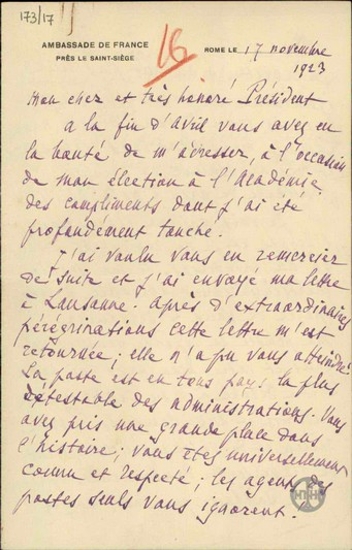 173/17
16
AMBASSADE DE FRANCE
PRÈS LE SAINT-SIÈGE
ROME LE 17 novembre
1923
Mon cher et très honoré Président
a la fin d'avril vous avez eu
la bonté de m'adresser, à l'occasion
de mon élection à l'Académie,
des compliments dont j'ai été
profondément touché.
J'ai voulu vous en remercier
de suite et j'ai envoyé ma lettre
à Lausanne. Après d'extraordinaires
pérégrinations cette lettre m'est
retournée; elle n'a pu vous atteindre.
La poste est en tous pays la plus
détestable des administrations. Vous
avez pris une grande place dans
l'histoire; vous êtes universellement
connu et respecté; les agents des
postes seuls vous ignorent.